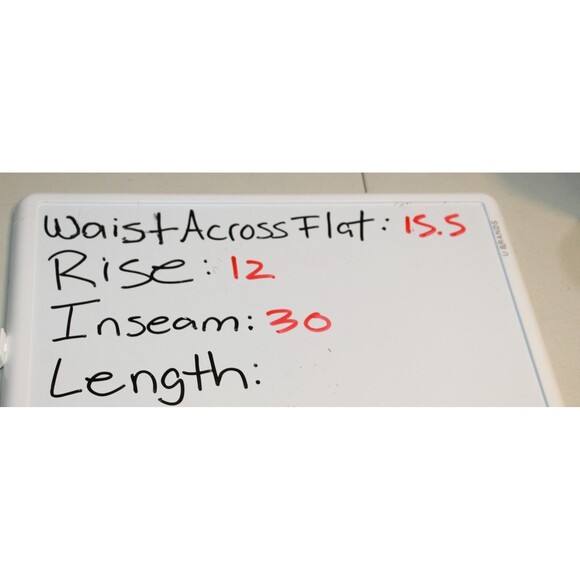 Waist Across Flat: 15.5
Rise: 12
Inseam: 30
Length:
U BRANDS